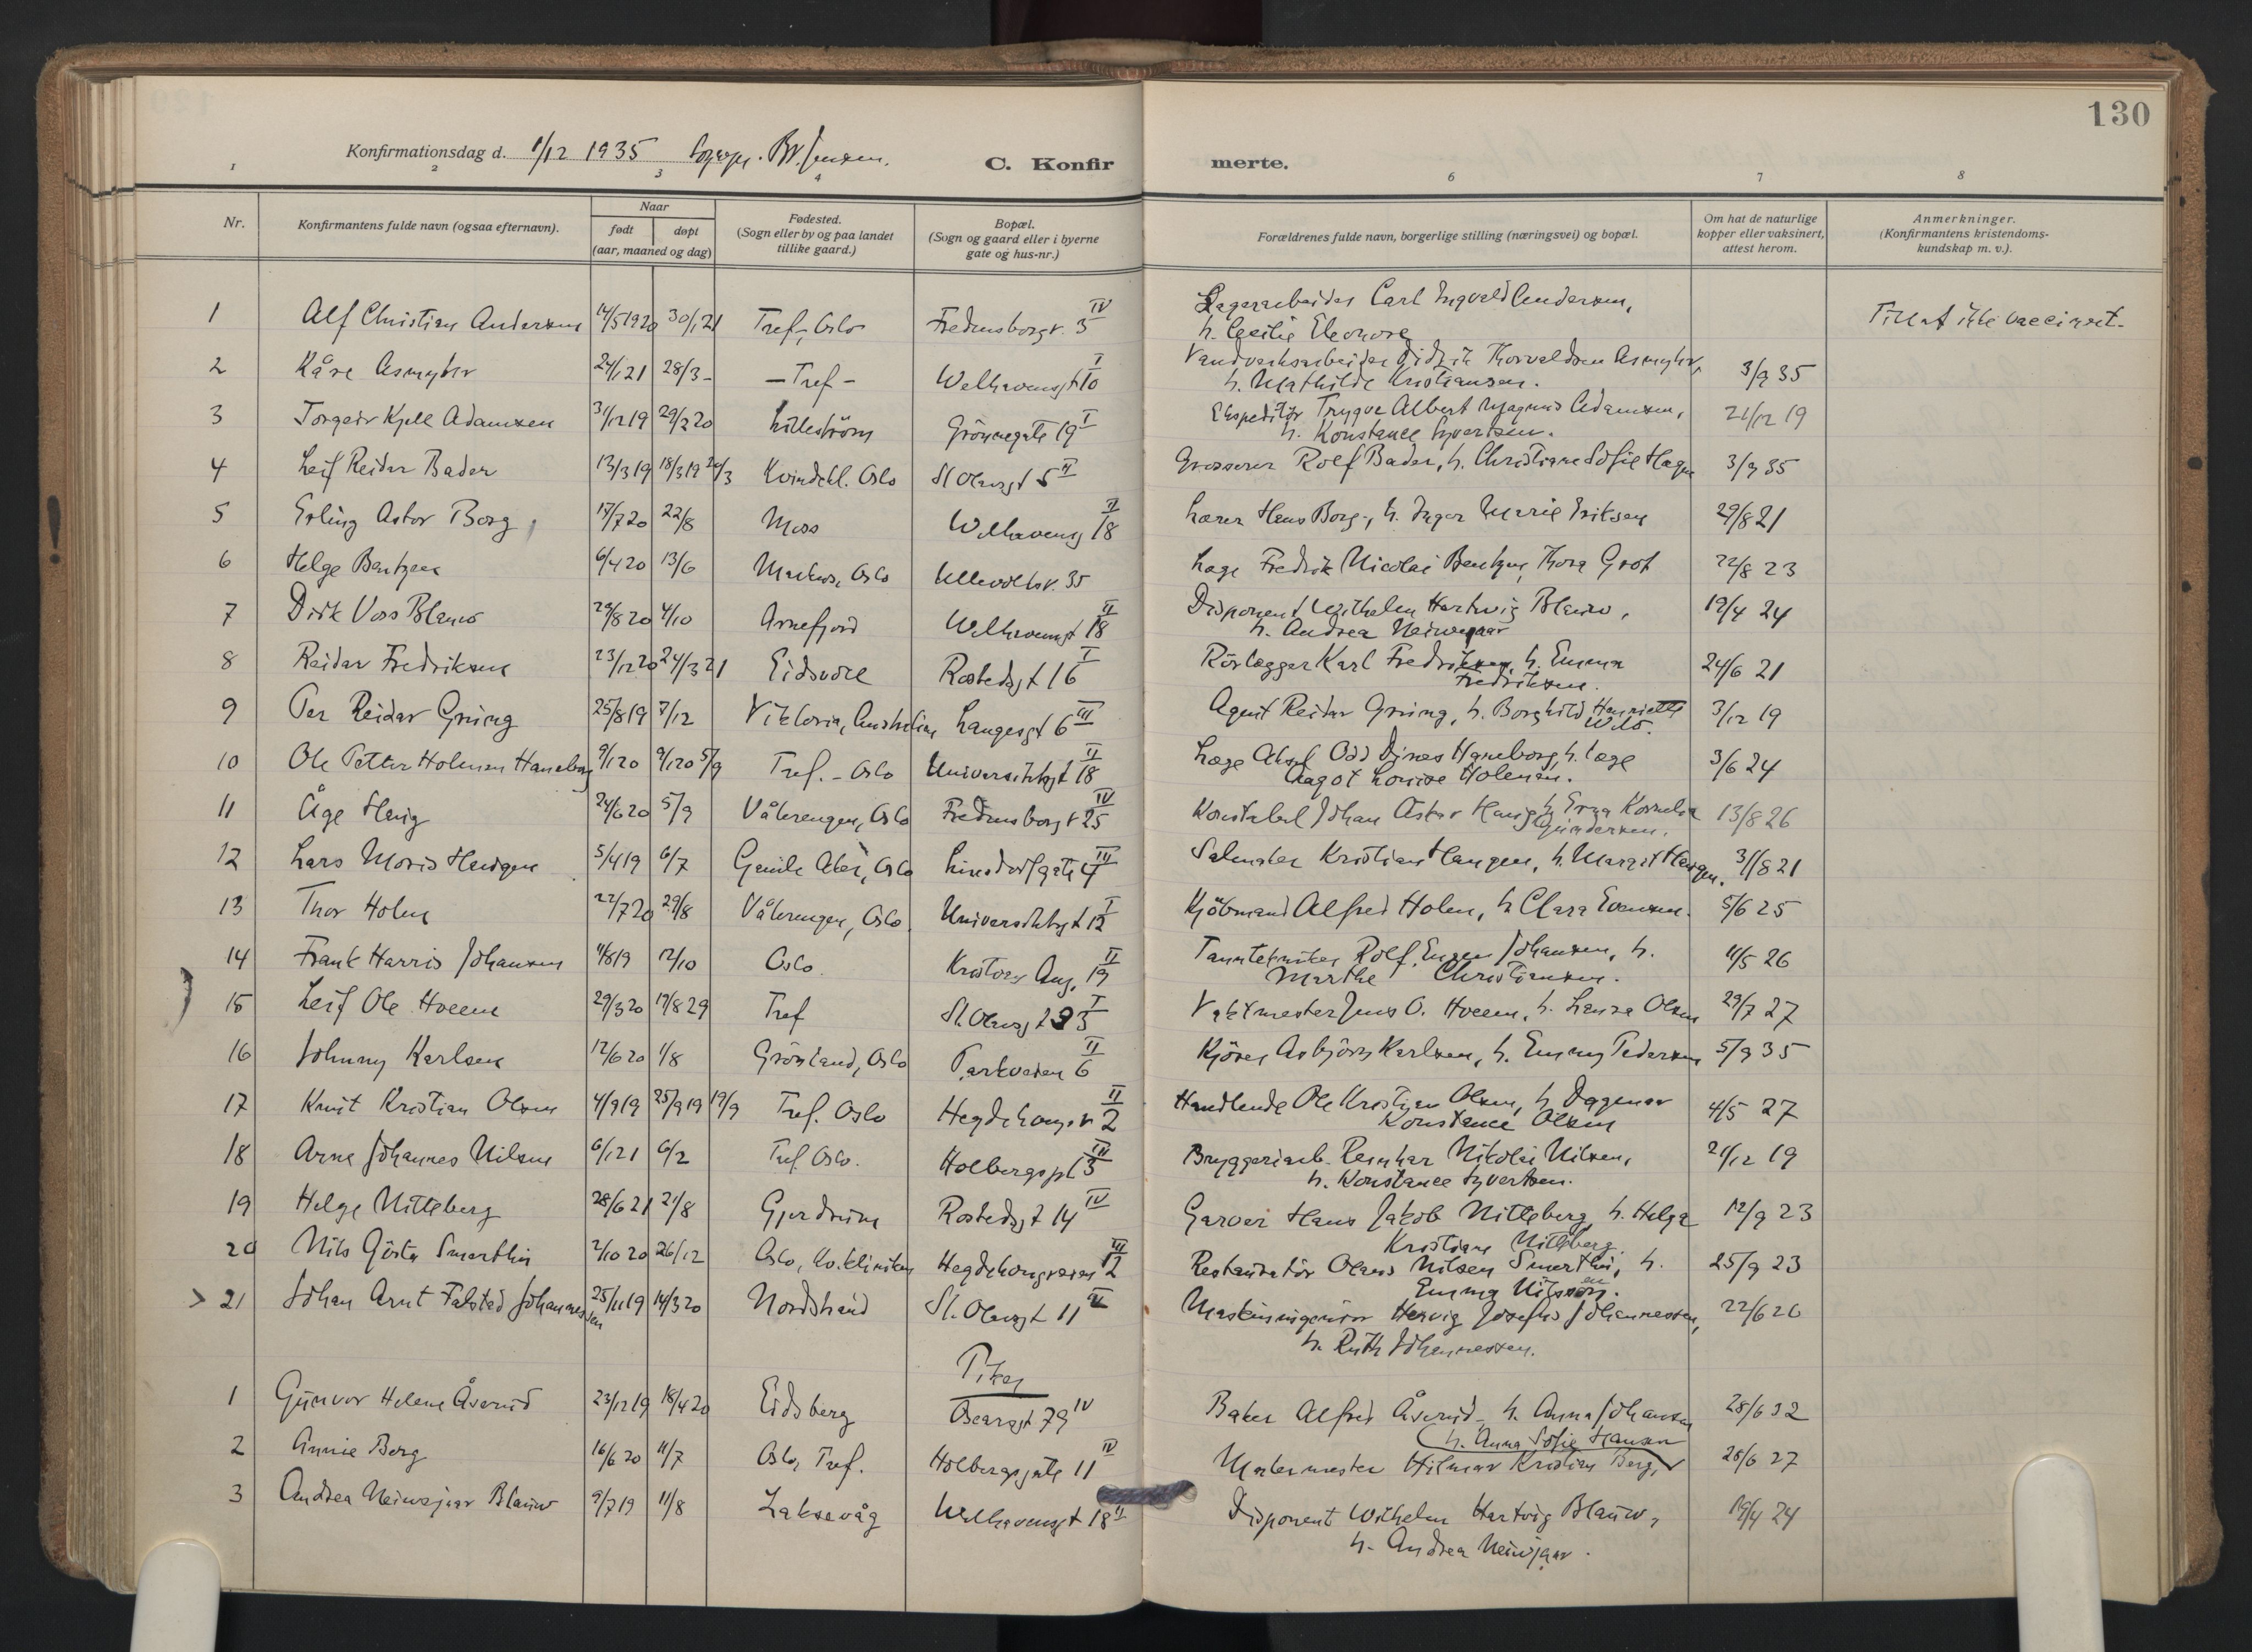 130
Konfirmationsdag d. 1/12 1935 Sogepr. Jensen.
C. Konfirmerte.
1 2 3 4 6 7 8
Nr. Konfirmantens fulde navn (ogsaa efternavn). Naar født døpt (aar, maaned og dag) Fødested. (Sogn eller by og paa landet tillike gaard.) Bopæl. (Sogn og gaard eller i byerne gate og hus-nr.) Forældrenes fulde navn, borgerlige stilling (næringsvei) og bopæl. Om hat de naturlige kopper eller vaksinert, attest herom. Anmerkninger. (Konfirmantens kristendomskundskap m. v.).
1 Alf Christian Andersen 14/5 1920 30/1 21 Tref., Oslo Fredensborgv. 5 IV Lagerarbeider Carl Ingvald Andersen, Tillat ikke vaccinert.
h. Cecilie Eleonore
2 Kåre Asmyhr 24/1 21 28/3 - - Tref - Welhavensgt 10 I Vandverksarbeider Didrik Thorvaldsen Asmyhr, 3/9 35
h. Mathilde Kristiansen.
3 Torgeir Kjell Adamsen 31/12 19 29/2 20 Lilleström Grönnegate 19 I Ekspeditör Trygve Albert Magnus Adamsen, 21/12 19
h. Konstance Syvertsen.
4 Leif Reidar Bader 13/3 19 18/3 19 Kvindekl. Oslo St Olavsgt 5 II Grosserer Rolf Bader, h. Christiane Sofie 3/9 35
5 Erling Astor Borg 17/7 20 22/8 Moss Welhavensg 18 II Lærer Hans Borg, h. Inger Marie Eriksen 29/8 21
6 Helge Bentzen 6/4 20 13/6 Markus, Oslo Ullevoldsv. 35 Læge Fredrik Nicolai Bentzen, Thora Grot 22/8 23
7 Dirk Vos Blauw 29/8 20 4/10 Arnefjord Welhavensgt 18 II Disponent Wilhelm Hartwig Blauw, 19/4 24
h. Andrea Neiwejaar
8 Reidar Fredriksen 23/12 20 24/3 21 Eidsvoll Rostedsgt 16 I Rörlegger Karl Fredriksen, h. Emma 24/6 21
Fredriksen.
9 Per Reidar Grüng 25/8 19 7/12 Viktoria, Australien Langesgt 6 III Agent Reidar Grüng, h. Borghild Henriette 3/12 19
10 Ole Petter Holmen Haneborg 9/1 20 9/1 20 5/9 Tref. - Oslo Universitetsgt 18 II Læge Aksel Odd Dines Haneborg, h. læge 3/6 24
Aagot Louise Holmen.
11 Åge Haug 24/6 20 5/9 Vålerengen, Oslo Fredensborgv 25 IV Konstabel Johan Astor Haug, h. Erna Kornelia 13/8 26
Gundersen.
12 Lars Moris Haugen 5/4 19 6/7 Gamle Aker, Oslo Linsdorfgate 4 III Salmaker Kristian Haugen, h. Margit Haugen. 31/8 21
13 Thor Holm 22/7 20 29/8 Vålerengen, Oslo. Universitetsgt 12 I Kjöbmand Alfred Holm, h. Clara Evensen. 5/6 25
14 Frank Harris Johansen 4/8 19 12/10 Oslo. Kristian Aug. 19 II Tanntekniker Rolf Eugen Johansen, h. 11/5 26
Marthe Christiansen.
15 Leif Ole Hveem 29/3 20 17/8 29 Tref St. Olavsgt 23 I Vaktmester Jens O. Hveem, h. Laura Olsen 29/7 27
16 Johnny Karlsen 12/6 20 1/8 Grönland, Oslo Parkveien 6 II Kjörer Asbjörn Karlsen, h. Emmy Pedersen 5/9 35
17 Knut Kristian Olsen 4/9 19 25/9 19 19/9 Tref. Oslo Hegdehaugsv 2 II Handlende Ole Kristian Olsen, h. Dagmar 4/5 27
Konstance Olsen
18 Arne Johannes Nilsen 6/1 21 6/2 Tref Oslo. Holbergspl 3 III Bryggeriarb. Reinhar Nikolai Nilsen, 21/12 19
h. Konstance Syvertsen.
19 Helge Nitteberg 28/6 21 21/8 Gjerdrum Rostedsgt 14 IV Garver Hans Jakob Nitteberg, h. Helga 12/9 23
Kristiane Nitteberg.
20 Nils Gösta Smerthin 2/10 20 26/12 Oslo, Kv.kliniken Hegdehaugsveien 12 III Restauratör Olaus Nilsen Smerthin, h. 25/9 23
Emma Nilsson.
21 Johan Arnt Falstad Johannessen 25/11 19 14/3 20 Nordstrand St. Olavsgt 11 Maskiningeniör Hervig Josefus Johannessen, 22/6 26
h. Ruth Johannessen.
Piker
1 Gunvor Helene Åserud 23/12 19 18/4 20 Eidsberg Oscarsgt 79 IV Baker Alfred Åserud, h. Anna Johansen 28/6 32
2 Annie Berg 16/6 20 11/7 Oslo, Tref. Holbergsgate 11 IV h. Anna Sofie Hansen
Malermester Hilmar Kristian Berg, 28/6 27
3 Andrea Neiwejaar Blauw 9/7 19 11/8 Laksevåg Welhavensgt 18 II Disponent Wilhelm Hartvig Blauw, 19/4 24
h. Andrea Neiwjaar.